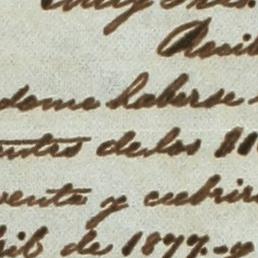 Recib
dome haberse
entes de los 11
venta y cubrir
ril de 1877.-y